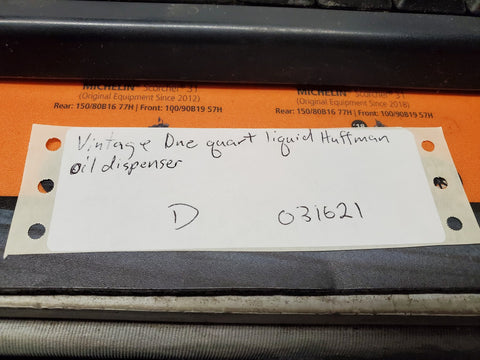 MICHELIN Scorcher "31"
(Original Equipment Since 2012)
Rear: 150/80B16 77H | Front: 100/90B19 57H
MICHELIN Scorcher "31"
(Original Equipment Since 2018)
Rear: 150/80B16 77H | Front: 100/90B19 57H
Vintage One quart liquid Huffman
oil dispenser
D 031621